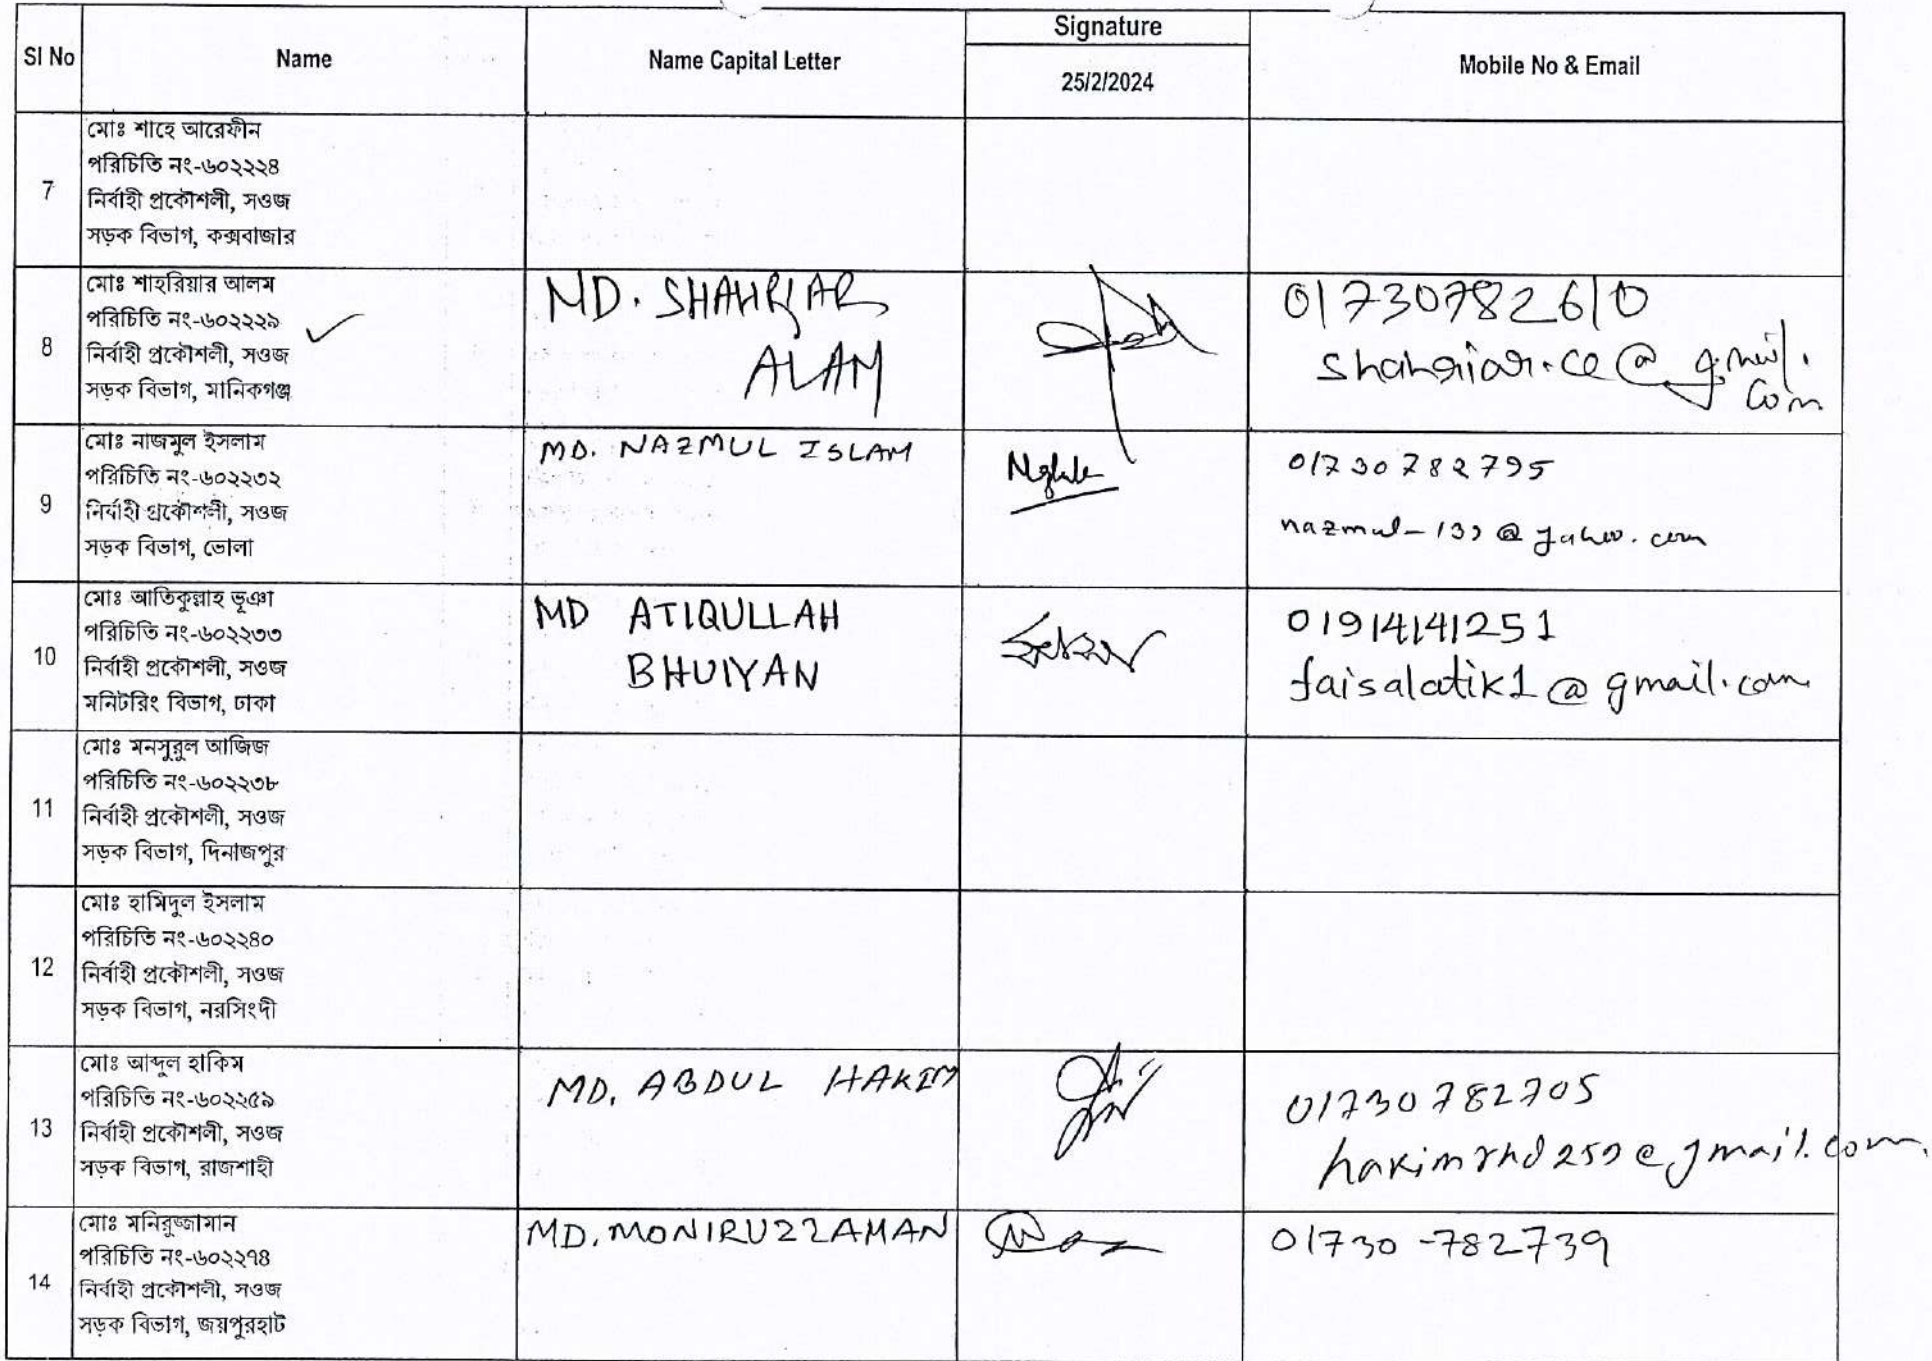 Sl No
Name
Name Capital Letter
Signature
25/2/2024
Mobile No & Email
7
মোঃ শাহে আরেফীন
পরিচিতি নং-৬০২২২৪
নির্বাহী প্রকৌশলী, সওজ
সড়ক বিভাগ, কক্সবাজার
8
মোঃ শাহরিয়ার আলম
পরিচিতি নং-৬০২২২৯
নির্বাহী প্রকৌশলী, সওজ
সড়ক বিভাগ, মানিকগঞ্জ
MD. SHAHRIAR
ALAM
01730782610
shahriar.ce@gmail.
com
9
মোঃ নাজমুল ইসলাম
পরিচিতি নং-৬০২২৩২
নির্বাহী প্রকৌশলী, সওজ
সড়ক বিভাগ, ভোলা
MD. NAZMUL ISLAM
01730782795
@yahoo.com
10
মোঃ আতিকুল্লাহ ভূঞা
পরিচিতি নং-৬০২২৩৩
নির্বাহী প্রকৌশলী, সওজ
মনিটরিং বিভাগ, ঢাকা
MD ATIQULLAH
BHUIYAN
01914141251
faisalatik1@gmail.com
11
মোঃ মনসুরুল আজিজ
পরিচিতি নং-৬০২২৩৮
নির্বাহী প্রকৌশলী, সওজ
সড়ক বিভাগ, দিনাজপুর
12
মোঃ হামিদুল ইসলাম
পরিচিতি নং-৬০২২৪০
নির্বাহী প্রকৌশলী, সওজ
সড়ক বিভাগ, নরসিংদী
13
মোঃ আব্দুল হাকিম
পরিচিতি নং-৬০২২৫৯
নির্বাহী প্রকৌশলী, সওজ
সড়ক বিভাগ, রাজশাহী
MD. ABDUL HAKIM
01730782705
hakimrhd259@gmail.com
14
মোঃ মনিরুজ্জামান
পরিচিতি নং-৬০২২৭৪
নির্বাহী প্রকৌশলী, সওজ
সড়ক বিভাগ, জয়পুরহাট
MD. MONIRUZZAMAN
01730-782739